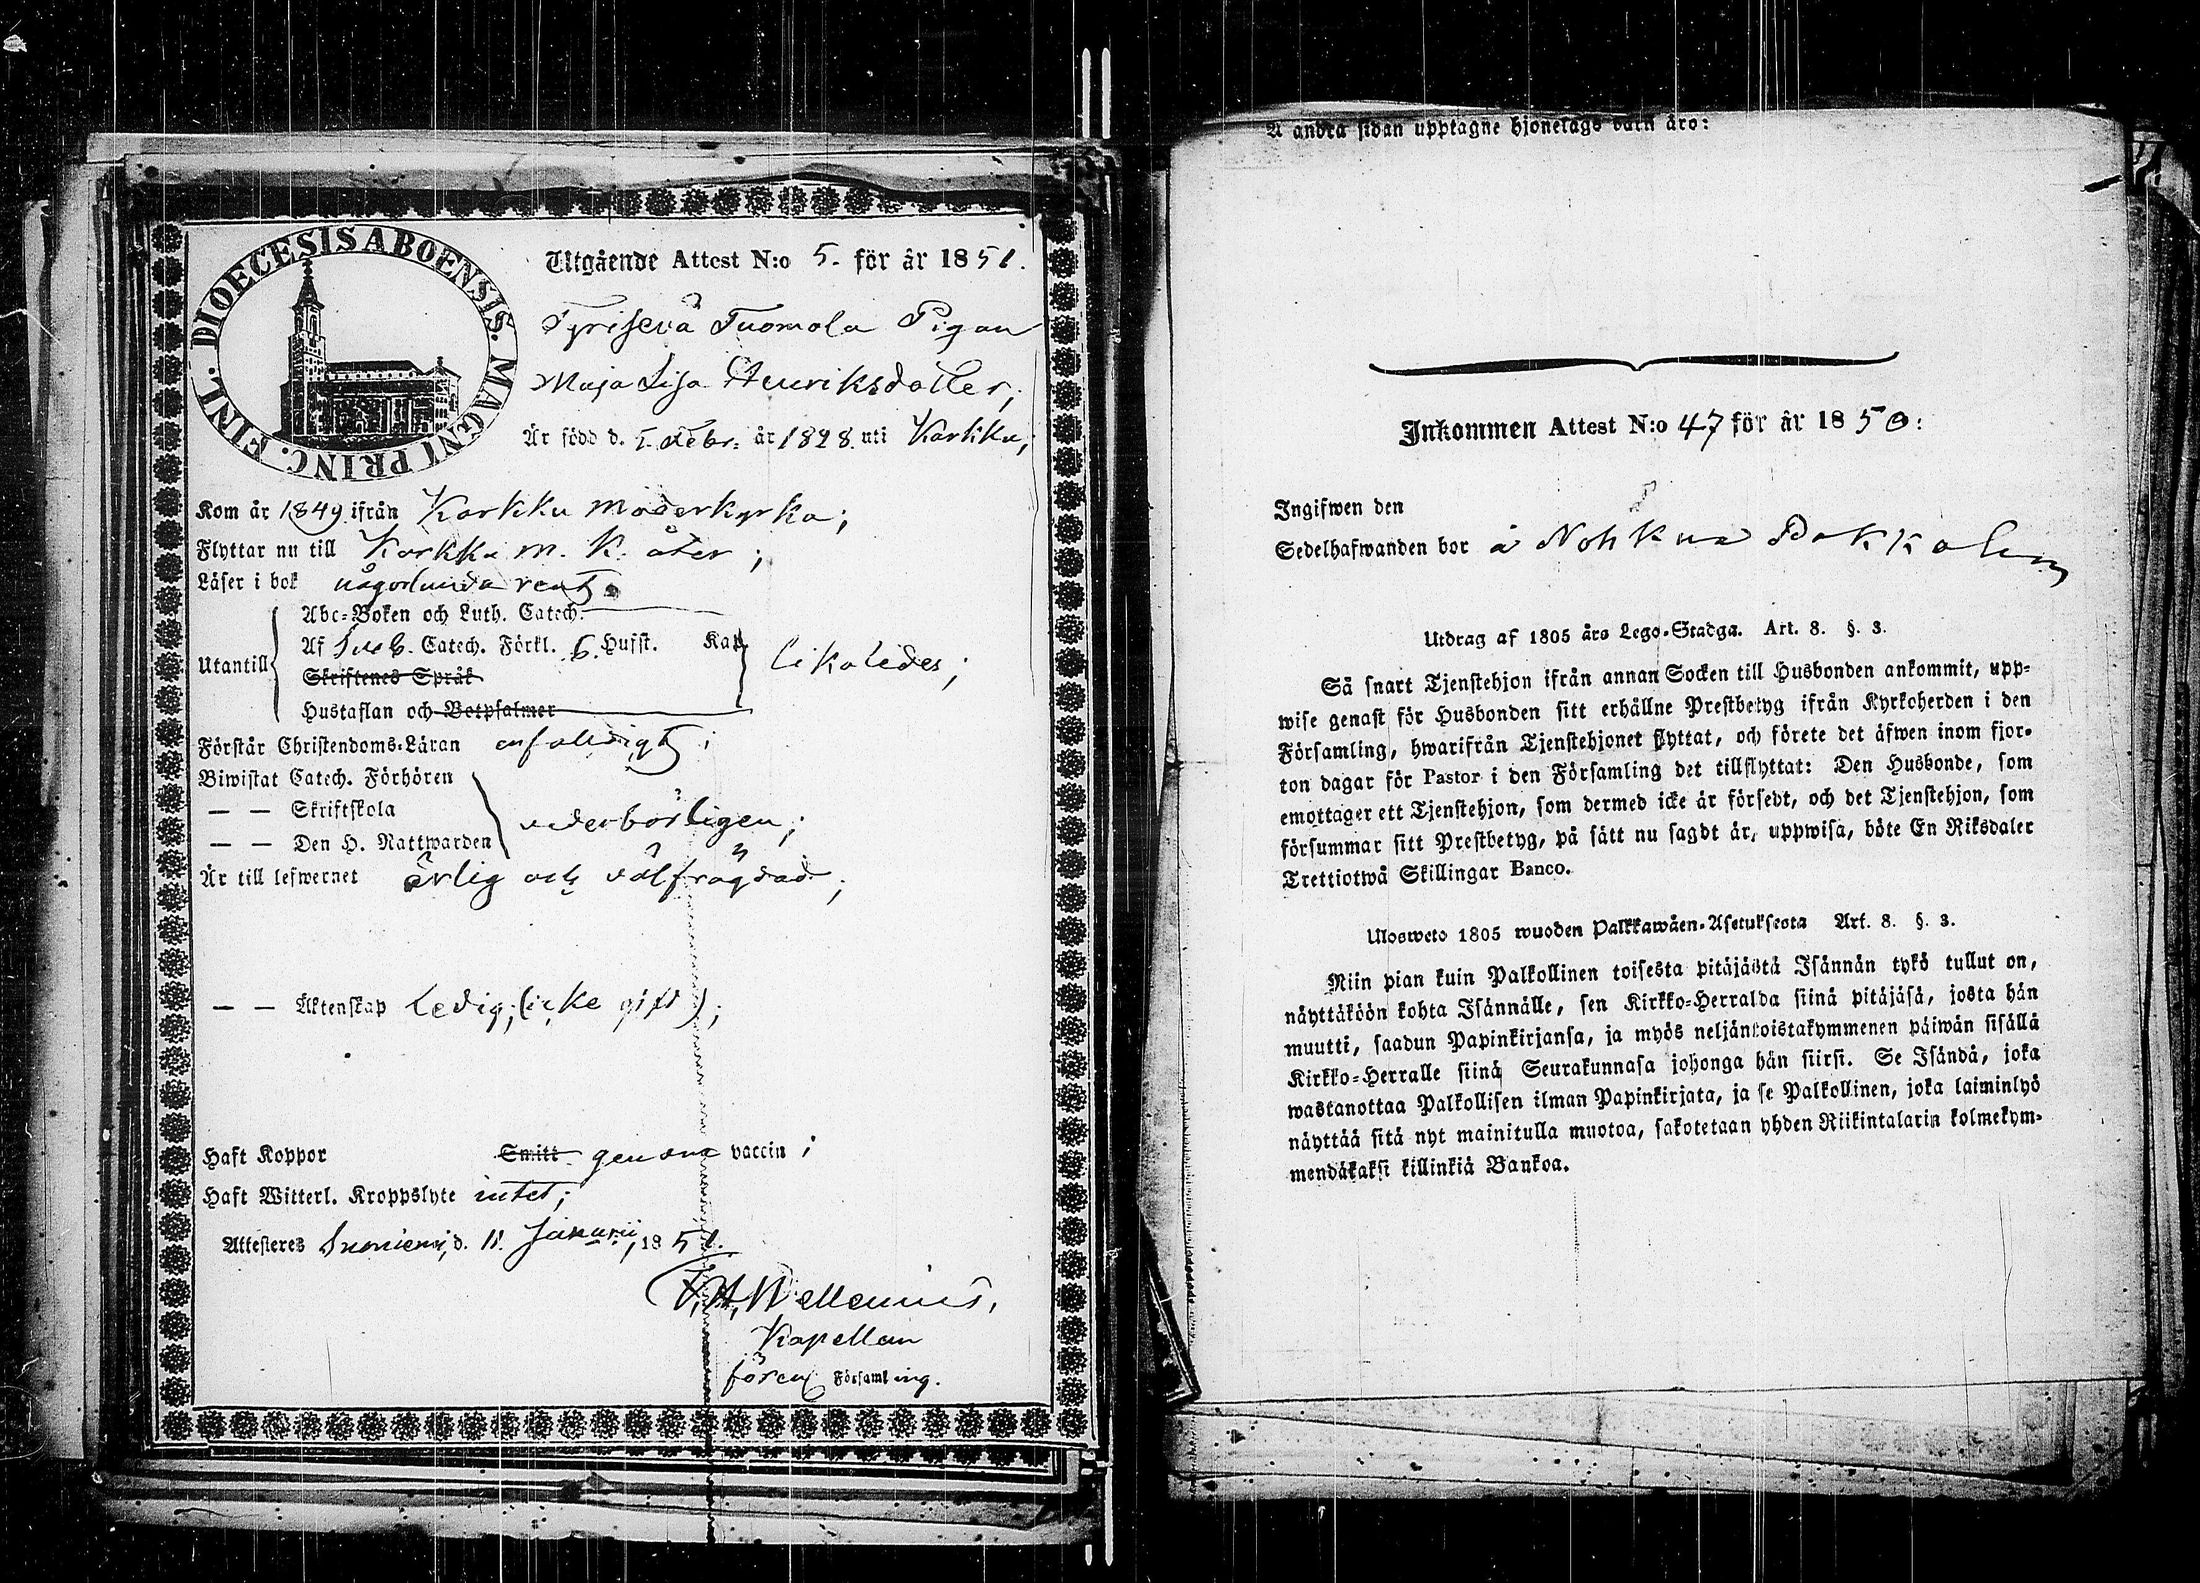 DIOECESIS ABOENSIS. MAGNI PRINC. FINL.
Utgående Attest N:o 5. för år 1851.
Tyrisevä Tuomola Pigan
Maja Lisa Henriksdotter;
Är född d. 5 Febr. år 1828. uti Karkku;
Kom år 1849 ifrån Karkku moderkyrka;
Flyttar nu till Karkku m. K. åter;
Läser i bok någorlunda rent
Abc-Boken och Luth. Catech.
Af Sveb. Catech. Förkl. 6. Hufst. Kap.
Utantill likaledes;
Skriftenes Språk
Hustaflan och Botpsalmer
Förstår Christendoms-Läran enfaldigt;
Biwistat Catech. Förhören
— — Skriftskola vederbörligen;
— — Den H. Nattwarden
Är till lefwernet ärlig och välfrägdad;
— — Äktenskap Ledig; (icke gift);
Haft Koppor Smitt genom vaccin;
Haft Witterl. Kroppslyte intet;
Attesteres Suoniemi, d. 11. Januarii, 1851.
Kapellan
fören. Församling.
Å andra sidan upptagne hjonelags barn äro:
Inkommen Attest N:o 47 för år 1850:
Ingifwen den
Sedelhafwanden bor å Nohkua Pakkalan
Utdrag af 1805 års Lego-Stadga. Art. 8. §. 3.
Så snart Tjenstehjon ifrån annan Socken till Husbonden ankommit, upp-
wise genast för Husbonden sitt erhållne Prestbetyg ifrån Kyrkoherden i den
Församling, hwarifrån Tjenstehjonet flyttat, och förete det äfwen inom fjor-
ton dagar för Pastor i den Församling det tillflyttat: Den Husbonde, som
emottager ett Tjenstehjon, som dermed icke är försedt, och det Tjenstehjon, som
försummar sitt Prestbetyg, på sätt nu sagdt är, uppwisa, böte En Riksdaler
Trettiotwå Skillingar Banco.
Ulosweto 1805 wuoden Palkkawäen-Asetuksesta Art. 8. §. 3.
Niin pian kuin Palkollinen toisesta pitäjästä Isännän tykö tullut on,
näyttäköön kohta Isännälle, sen Kirkko-Herralda siinä pitäjäsä, josta hän
muutti, saadun Papinkirjansa, ja myös neljäntoistakymmenen päiwän sisällä
Kirkko-Herralle siinä Seurakunnasa johonga hän siirsi. Se Isändä, joka
wastanottaa Palkollisen ilman Papinkirjata, ja se Palkollinen, joka laiminlyö
näyttää sitä nyt mainitulla muotoa, sakotetaan yhden Riikintalarin kolmekym-
mendäkaksi killinkiä Bankoa.